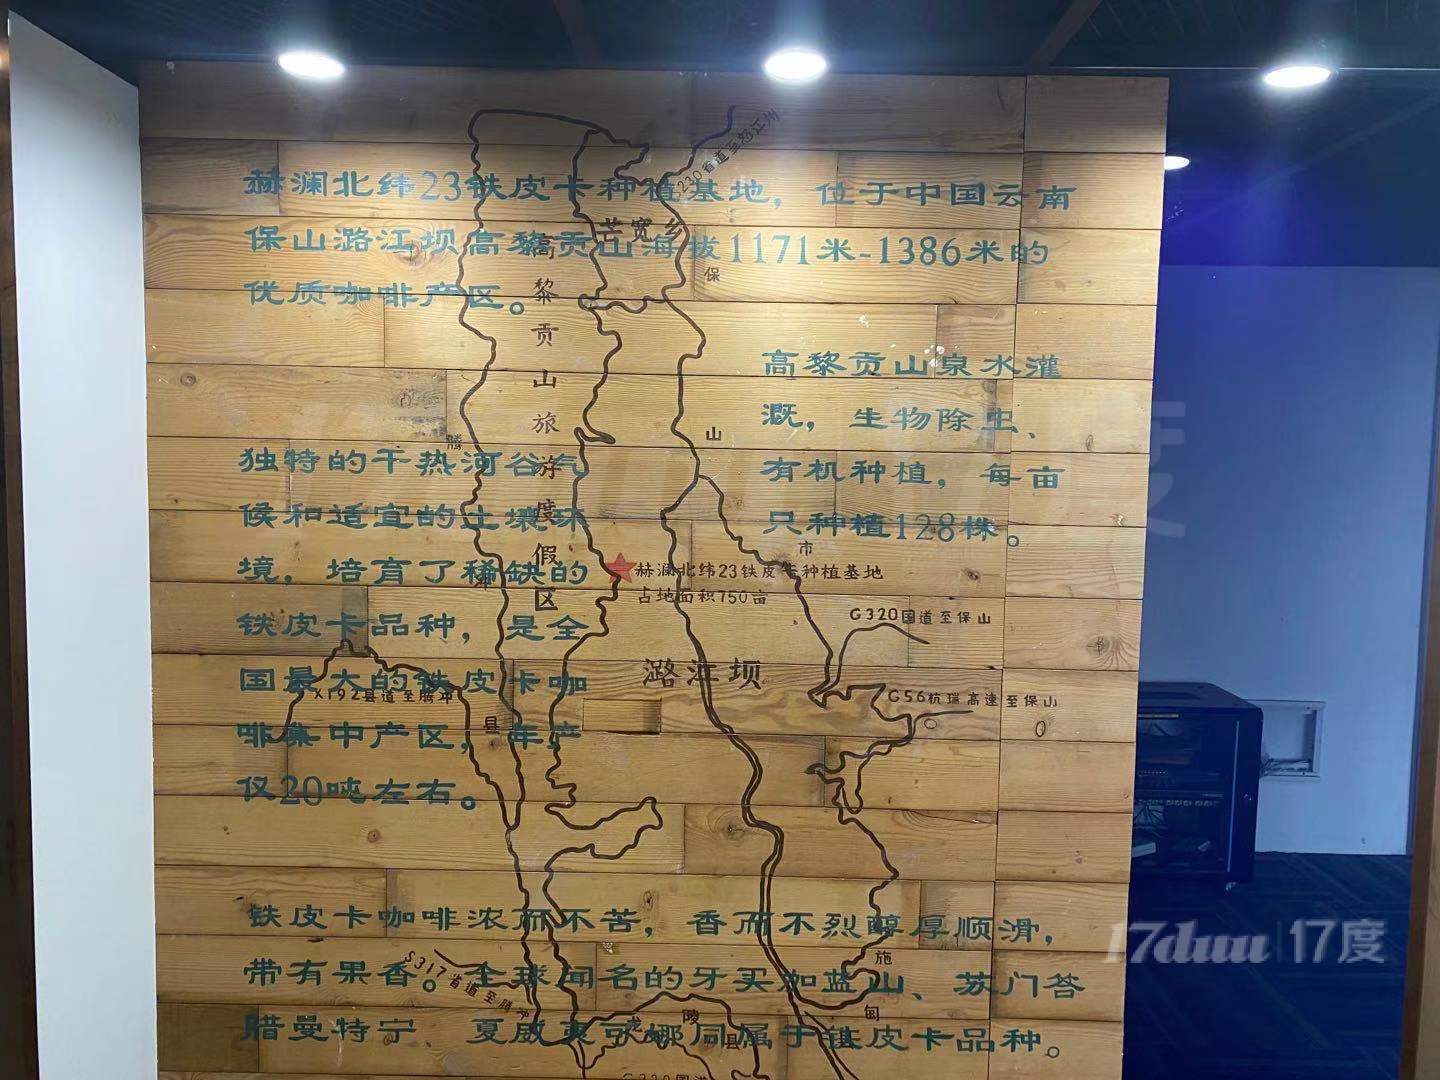 230省道至怒江州
赫澜北纬23铁皮卡种植基地，位于中国云南
保山潞江坝高黎贡山海拔1171米-1386米的
优质咖啡产区。
芒宽乡
高黎贡山旅游度假区
保
山
市
高黎贡山泉水灌
溉，生物除虫、
有机种植，每亩
只种植128株。
腾
冲
县
独特的干热河谷气
候和适宜的土壤环
境，培育了稀缺的
铁皮卡品种，是全
国最大的铁皮卡咖
啡集中产区，年产
仅20吨左右。
赫澜北纬23铁皮卡种植基地
占地面积750亩
G320国道至保山
潞江坝
X192县道至腾冲
G56杭瑞高速至保山
铁皮卡咖啡浓而不苦，香而不烈醇厚顺滑，
带有果香。全球闻名的牙买加蓝山、苏门答
腊曼特宁、夏威夷可娜同属于铁皮卡品种。
S317省道至腾冲
施
甸
县
龙陵县
17duu 17度